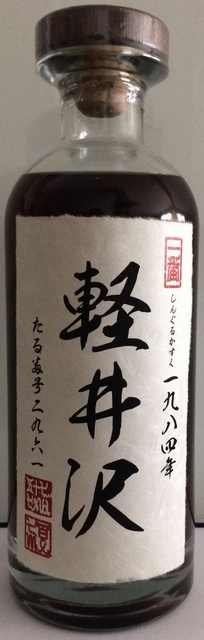 一番
しんぐるかすく
一九八四年
軽井沢
たる番号三九六一